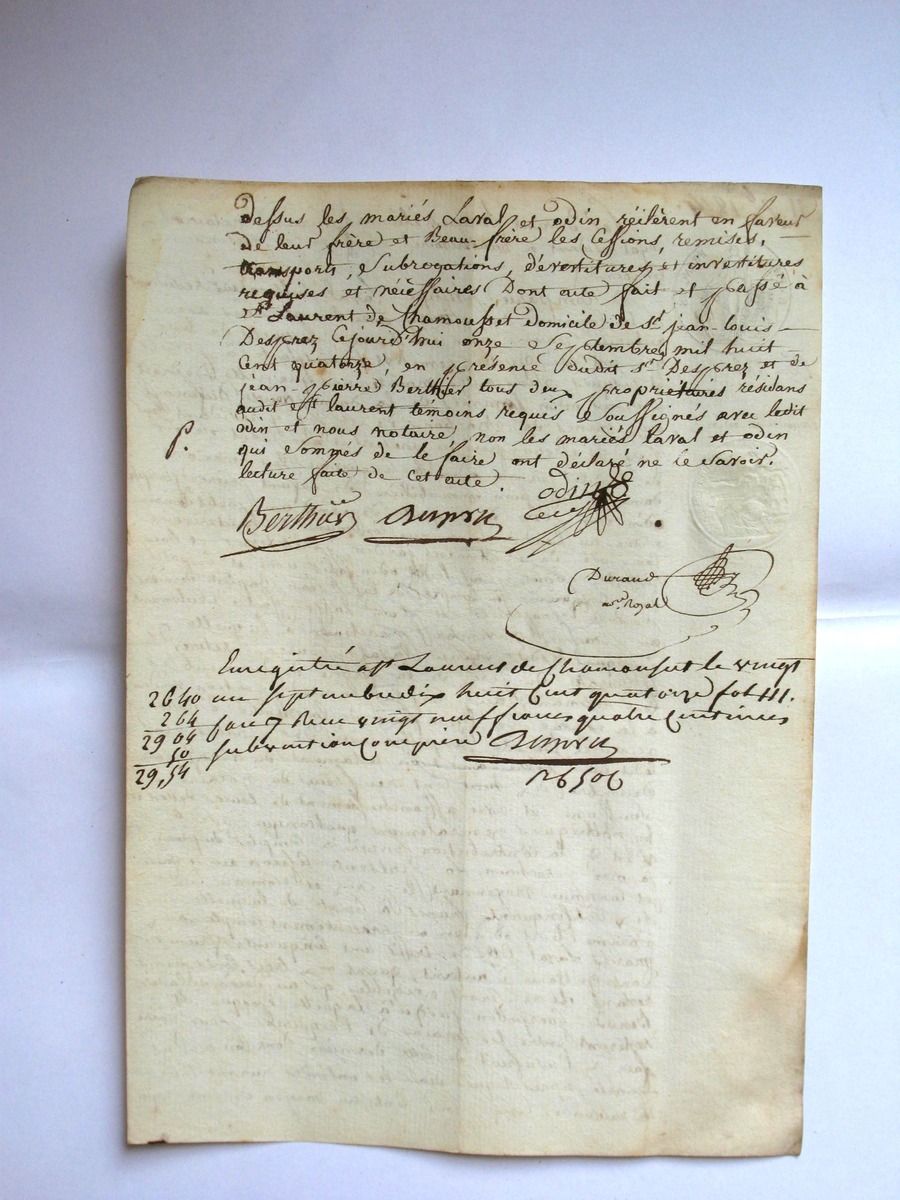 dessus les mariés Laval et odin réïlèrent en faveur
de leur frère et Beau-frère les Cessions, remises,
transports, subrogations, dévestitures et investitures
requises et nécessaires Dont acte fait et passé à
St Laurent de Chamousset domicile de Sr. jean-louis
Desprez Cejourd'hui onze septembre mil huit
Cent quatorze, en présence dudit Sr Desprez et de
jean-pierre Berthier tous deux propriétaires résidans
audit St laurent témoins requis & soussignés avec ledit
P. odin et nous notaire, non les mariés laval et odin
qui sommés de le faire ont déclaré ne le savoir.
lecture faite de cet acte.
odin
Berthier
Durand
nre. Royal
Enregistré a St Laurent de Chamousset le vingt
2640 un septembre dix huit Cent quatorze fol 111.
264 Case 7 Reçu vingt neuf francs quatre Centimes
2904 subvention Comprise
50
29,54
26506